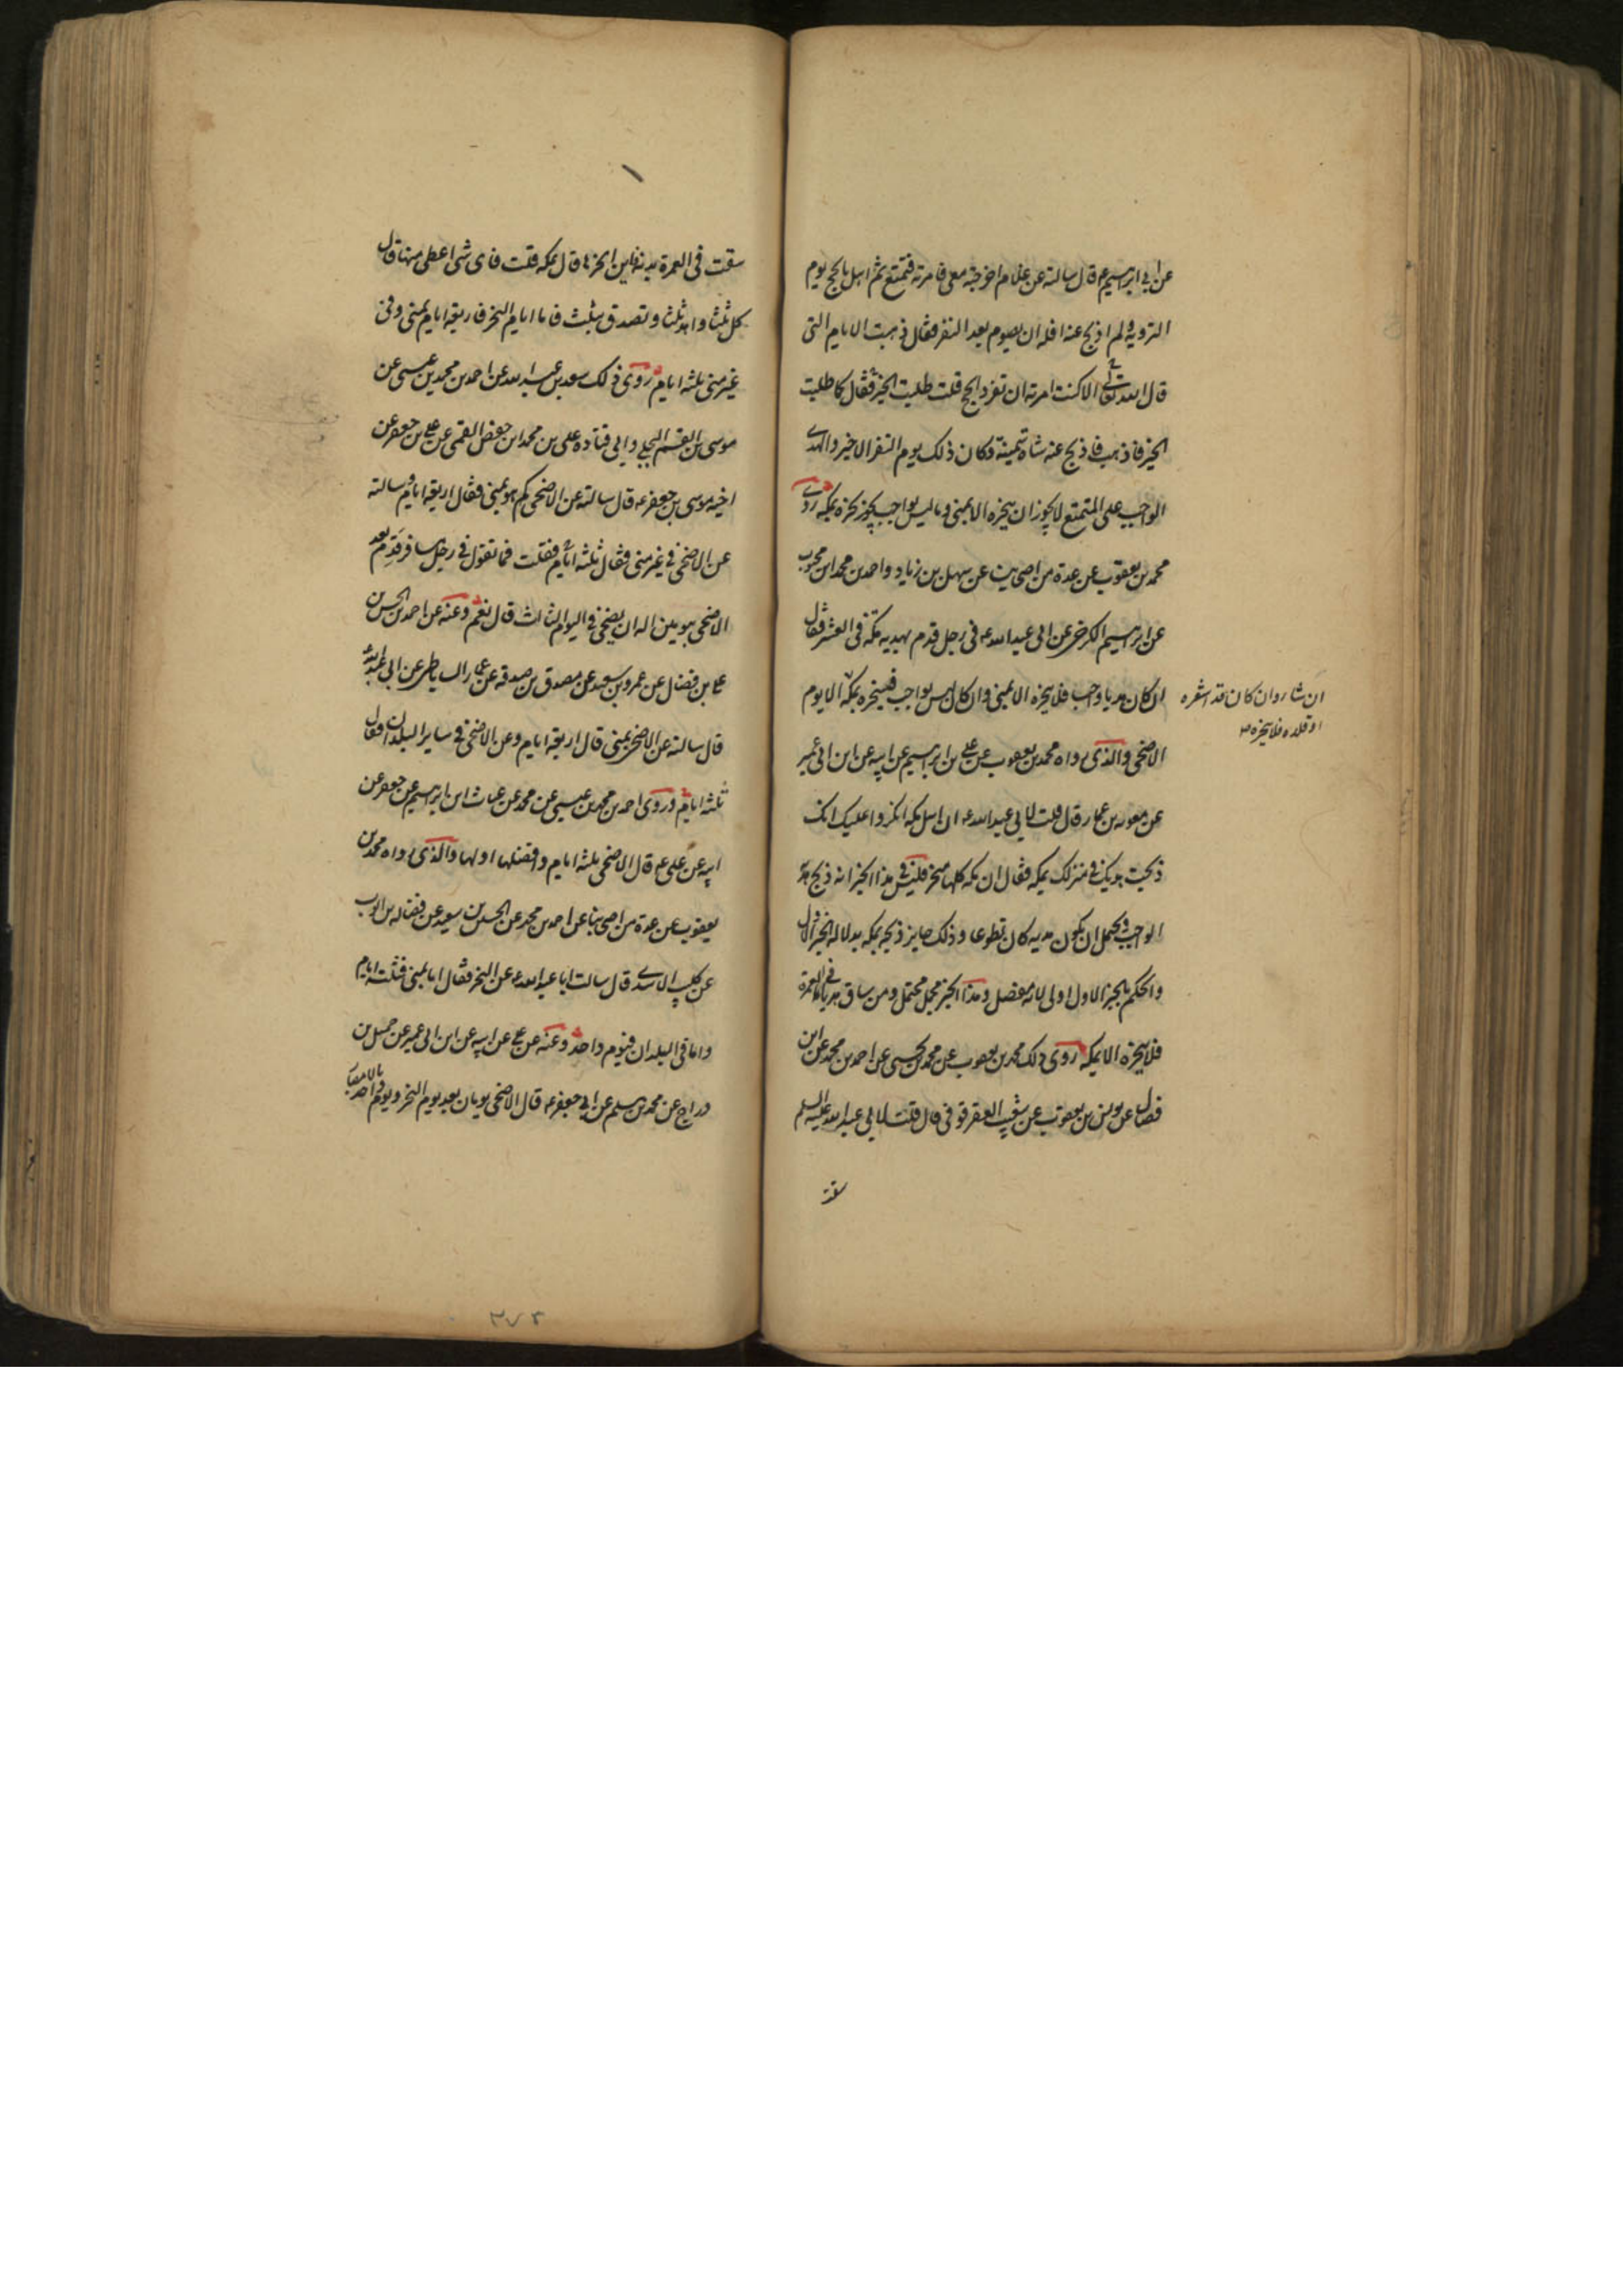 عن ابي ابرهيم ع قال سالته عن غلام اخرجته معي فامرته فتمتع ثم اهل بالحج يوم
التروية ولم اذبح عنه افله ان يصوم بعد النفر فقال ذهبت الايام التي
قال الله تعالى الا كنت امرته ان تفرد الحج قلت طلبت الخير فقال كما طلبت
الخير فاذهب فاذبح عنه شاة سمينة وكان ذلك يوم النفر الاخير والهدي
الواجب على المتمتع لا يجوز ان ينحره الا بمنى وما ليس بواجب يجوز نحره بمكة روى
محمد بن يعقوب عن عدة من اصحابنا عن سهل بن زياد واحمد بن محمد ابن محبوب
عن ابرهيم الكرخي عن ابي عبد الله ع في رجل قدم بهديه مكة في العشر فقال
ان كان هديا واجب فلا ينحره الا بمنى وان كان ليس بواجب فلينحره بمكة
ان شاء وان كان قد اشعره
او قلده فلا ينحره
الا يوم
الاضحى والذي رواه محمد بن يعقوب عن علي بن ابرهيم عن ابيه عن ابن ابي عمير
عن معوية بن عمار قال قلت لابي عبد الله ع ان اهل مكة انكروا عليك انك
ذبحت هديك في منزلك بمكة فقال ان مكة كلها منحر فليس في هذا الخبر انه ذبح هديه
الواجب ويحتمل ان يكون هديه كان تطوعا وذلك جايز ذبحه بمكة بدلالة الخبر الاول
والحكم بالخبر الاول اولى لانه مفصل وهذا الخبر مجمل محتمل ومن ساق هديا في العمرة
فلا ينحره الا بمكة روى ذلك محمد بن يعقوب عن محمد بن يحيى عن احمد بن محمد عن ابن
فضال عن يونس بن يعقوب عن شعيب العقرقوفي قال قلت لابي عبد الله عليه السلم
سقت
سقت في العمرة بدنة فاين انحرها قال بمكة قلت فاى شي اعطى منها قال
كل ثلثا واهد ثلثا وتصدق بثلث فاما ايام النحر فاربعة ايام بمنى وفي
غير منى ثلثة ايام روى ذلك سعد بن عبد الله عن احمد بن محمد بن عيسى عن
موسى بن القسم البجلي وابي قتادة علي بن محمد ابن حفص القمي عن علي بن جعفر عن
اخيه موسى بن جعفر ع قال سالته عن الاضحى كم هو بمنى فقال اربعة ايام وسالته
عن الاضحى في غير منى فقال ثلثة ايام فقلت فما تقول في رجل سافر قدم بعد
الاضحى بيومين اله ان يضحي في اليوم الثالث قال نعم وعنه عن احمد بن الحسن
علي بن فضال عن عمرو بن سعيد عن مصدق بن صدقة عن عمار الساباطي عن ابي عبد الله
قال سالته عن الاضحى بمنى قال اربعة ايام وعن الاضحى في ساير البلدان فقال
ثلثة ايام وروى احمد بن محمد بن عيسى عن محمد عن غياث ابن ابرهيم عن جعفر عن
ابيه عن علي ع قال الاضحى ثلثة ايام وافضلها اولها والذي رواه محمد بن
يعقوب عن عدة من اصحابنا عن احمد بن محمد عن الحسين بن سعيد عن فضالة بن ايوب
عن كليب الاسدي قال سالت ابا عبد الله ع عن النحر فقال اما بمنى فثلثة ايام
واما في البلدان فيوم واحد وعنه عن علي عن ابيه عن ابن ابي عمير عن جميل بن
دراج عن محمد بن مسلم عن ابي جعفر ع قال الاضحى يومان بعد يوم النحر ويوم واحد بالامصار